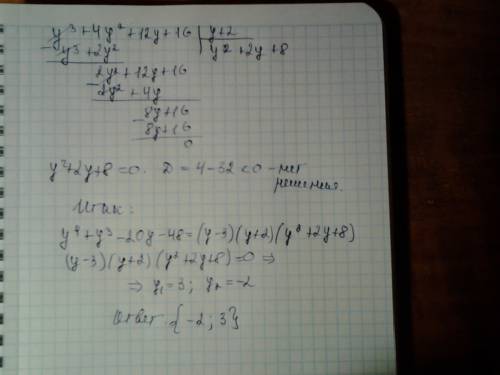 y³+4y²+12y+16 | y+2
- y³+2y² y²+2y+8
2y²+12y+16
- 2y²+4y
8y+16
- 8y+16
0
y²+2y+8=0. D=4-32<0 - нет
решения.
Итак:
y⁴+y³-20y-48=(y-3)(y+2)(y²+2y+8)
(y-3)(y+2)(y²+2y+8)=0 ⇒
⇒ y₁=3; y₂=-2
Ответ {-2; 3}